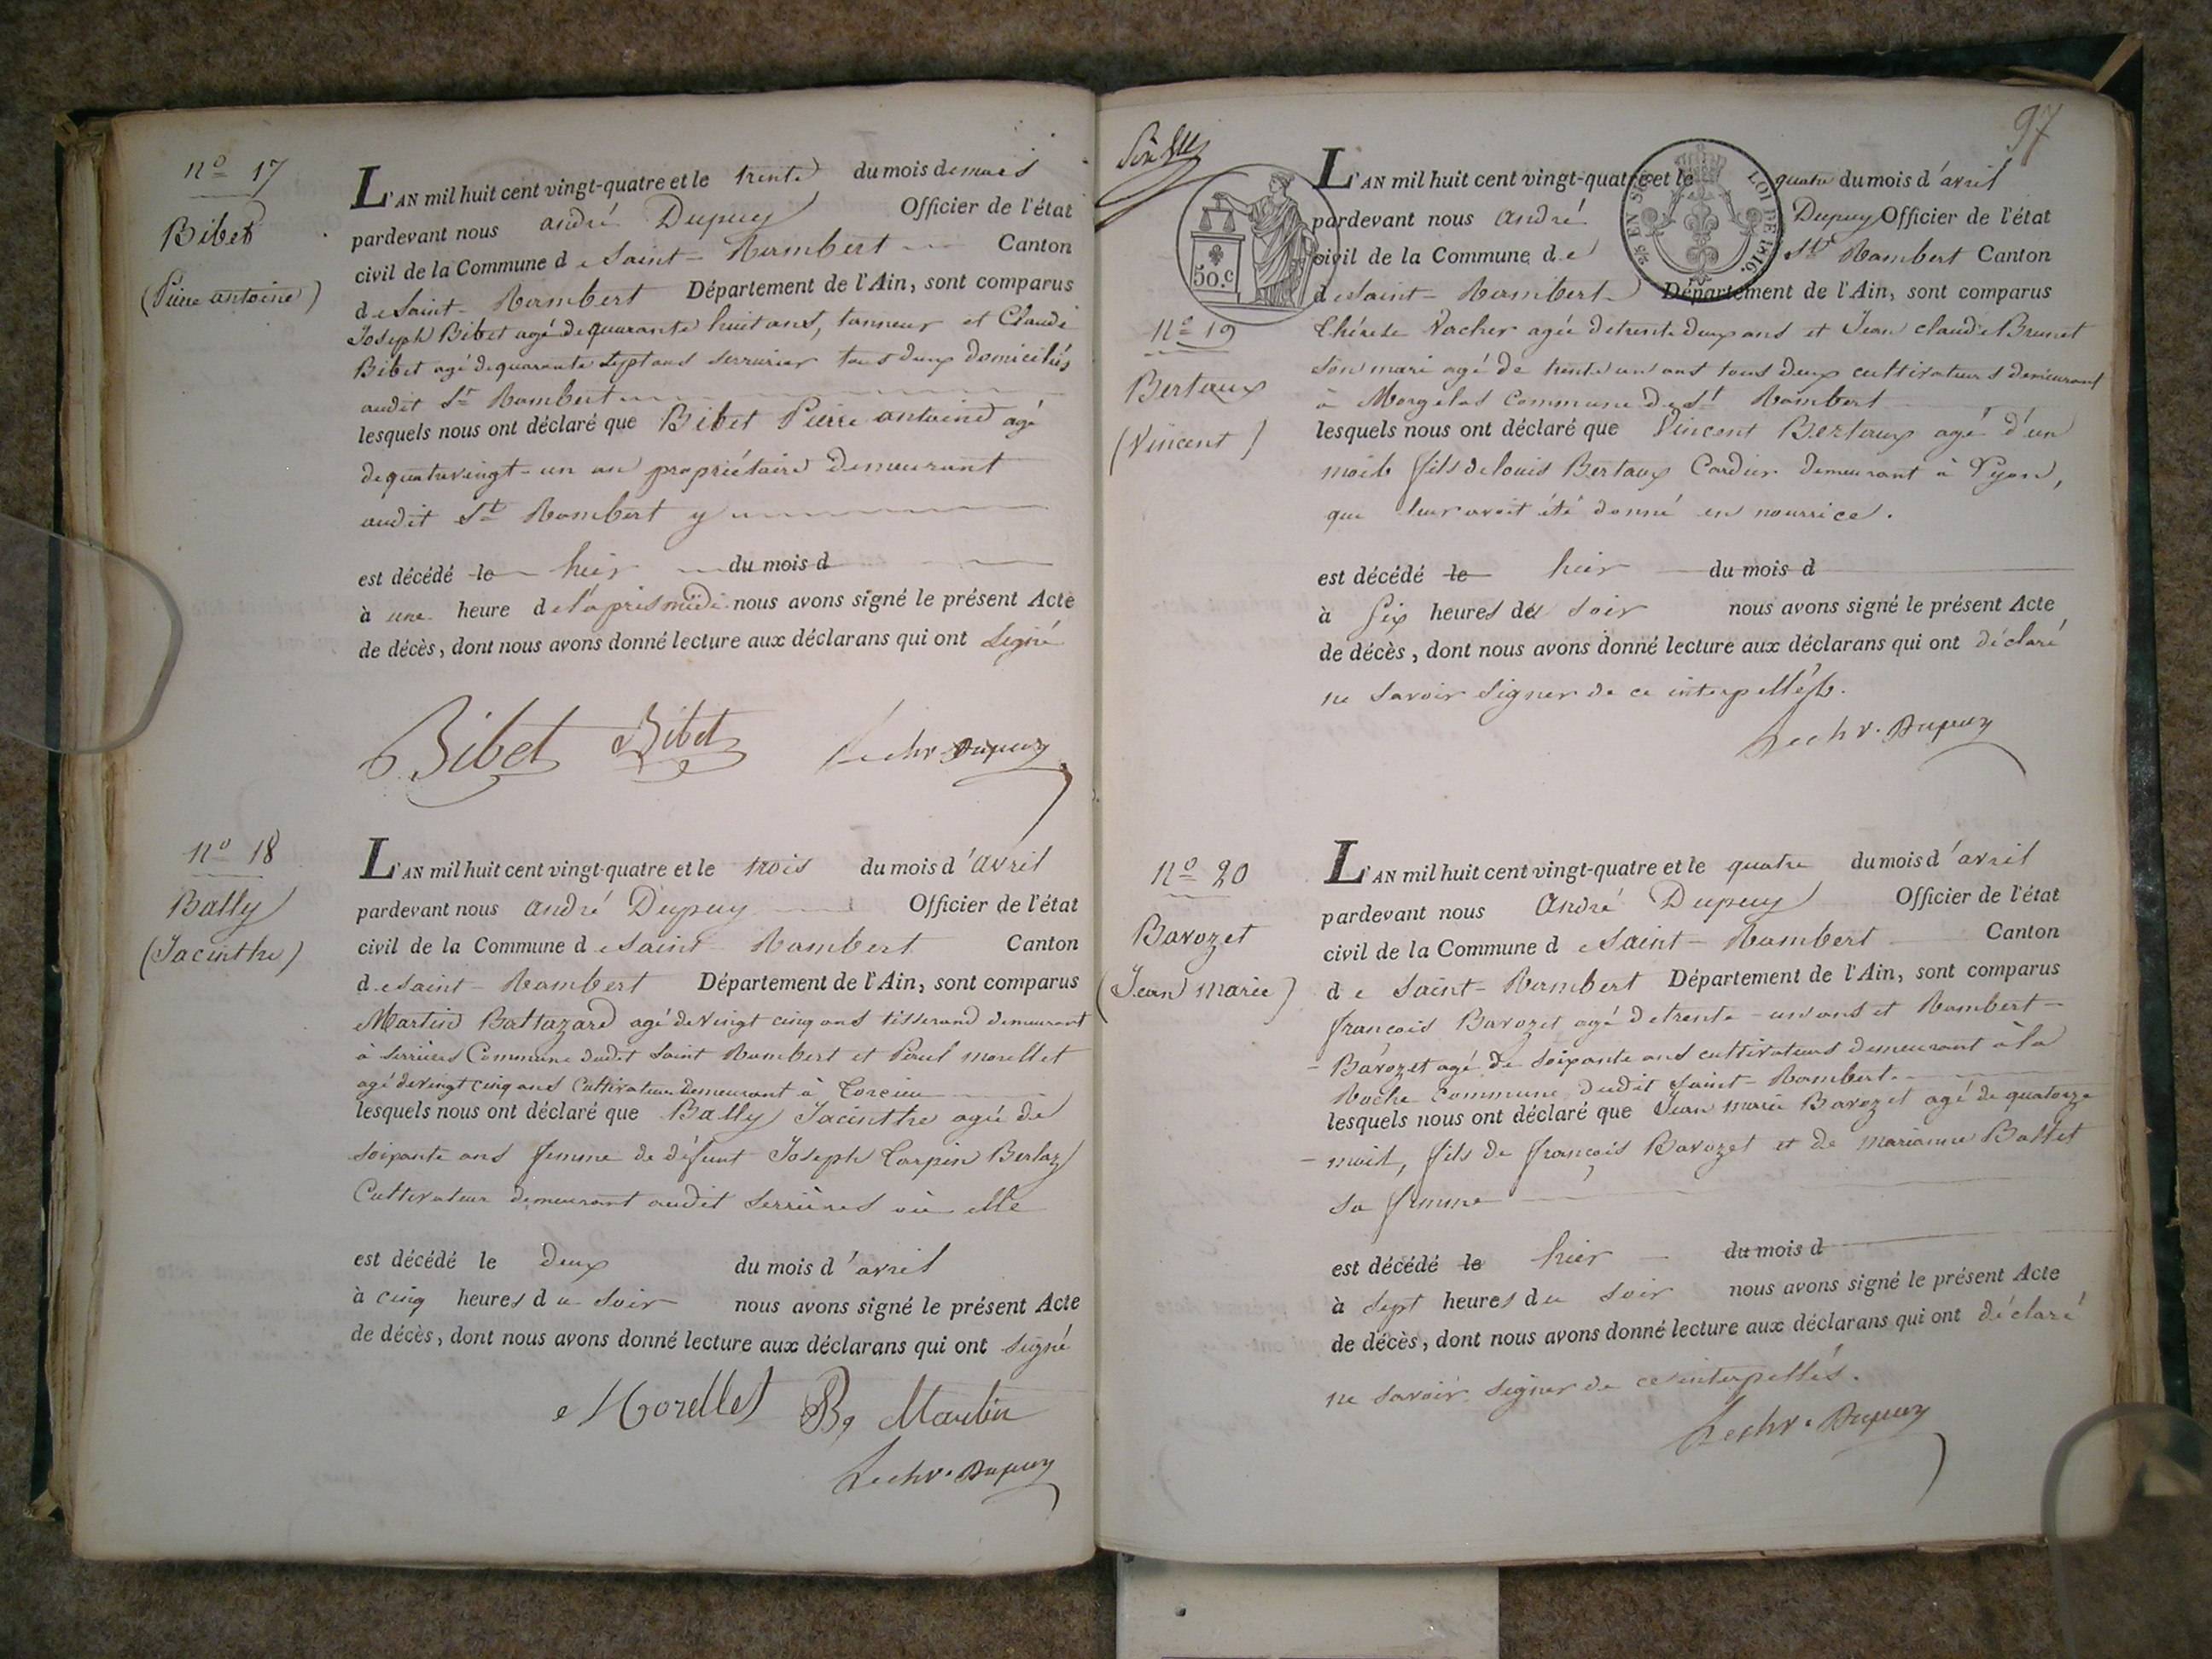 nº 17
Bibet
(Pierre antoine)
L'AN mil huit cent vingt-quatre et le trente du mois de mars
pardevant nous andré Dupuy Officier de l'état
civil de la Commune de Saint-Rambert Canton
de Saint-Rambert Département de l'Ain, sont comparus
Joseph Bibet agé de quarante huit ans, tanneur et Claude
Bibet agé de quarante sept ans serrurier tous deux domiciliés
audit St Rambert
lesquels nous ont déclaré que Bibet Pierre antoine agé
de quatrevingt-un an propriétaire demeurant
audit St Rambert y
est décédé le hier du mois d
à une heure de l'après midi nous avons signé le présent Acte
de décès, dont nous avons donné lecture aux déclarans qui ont signé
Bibet Bibet Le chr Dupuy
nº 18
Bally
(Jacinthe)
L'AN mil huit cent vingt-quatre et le trois du mois d'avril
pardevant nous andré Dupuy Officier de l'état
civil de la Commune de Saint Rambert Canton
de Saint-Rambert Département de l'Ain, sont comparus
Martin Baltazard agé de vingt cinq ans tisserand demeurant
à Serrières Commune dudit Saint Rambert et Paul morellet
agé de vingt cinq ans Cultivateur demeurant à Torcieu
lesquels nous ont déclaré que Bally Jacinthe agée de
soixante ans femme de défunt Joseph Carpin Berlaz
Cultivateur demeurant audit Serrières où elle
est décédé le deux du mois d'avril
à cinq heures du soir nous avons signé le présent Acte
de décès, dont nous avons donné lecture aux déclarans qui ont signé
Morellet B. Martin
Le chr. Dupuy
97
50.c
EN SUS
LOI DE 1816.
L'AN mil huit cent vingt-quatre et le quatre du mois d'avril
pardevant nous André Dupuy Officier de l'état
civil de la Commune de St Rambert Canton
de Saint-Rambert Département de l'Ain, sont comparus
nº 19
Bertaux
(Vincent)
thérèse Vacher agée de trente deux ans et Jean claude Brunet
son mari agé de trente un ans tous deux cultivateurs demeurant
à Morgelas Commune de St Rambert
lesquels nous ont déclaré que Vincent Bertaux agé d'un
mois fils de louis Bertaux Cordier demeurant à Lyon,
qui leur avoit été donné en nourrice.
est décédé le hier du mois d
à six heures du soir nous avons signé le présent Acte
de décès, dont nous avons donné lecture aux déclarans qui ont déclaré
ne savoir signer de ce interpellés.
Le chr. Dupuy
nº 20
Bavozet
(Jean marie)
L'AN mil huit cent vingt-quatre et le quatre du mois d'avril
pardevant nous André Dupuy Officier de l'état
civil de la Commune de Saint-Rambert Canton
de Saint-Rambert Département de l'Ain, sont comparus
françois Bavozet agé de trente-un ans et Rambert
Bavozet agé de soixante ans cultivateurs demeurant à la
Roche Commune dudit Saint-Rambert.
lesquels nous ont déclaré que Jean marie Bavozet agé de quatorze
mois, fils de françois Bavozet et de marianne Ballet
sa femme
est décédé le hier du mois d
à sept heures du soir nous avons signé le présent Acte
de décès, dont nous avons donné lecture aux déclarans qui ont déclaré
ne savoir signer de ce interpellés.
Le chr. Dupuy